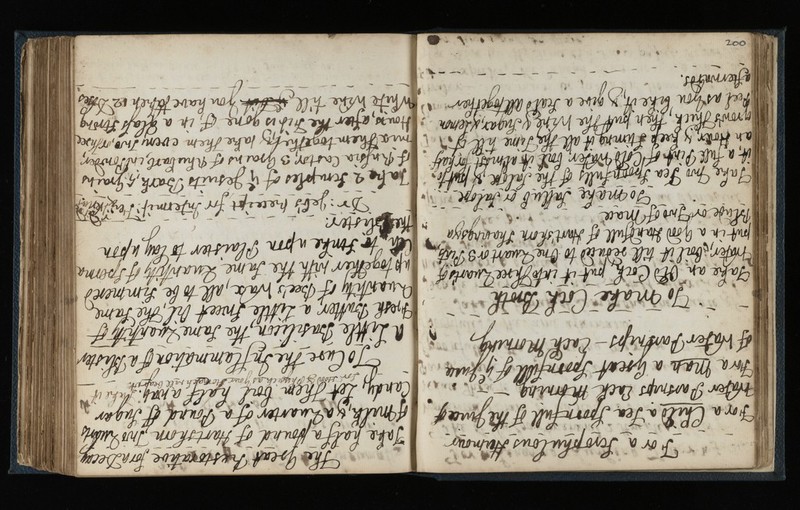 200
For a Scrophulous Humour
For a Child a Tea Spoonfull of the Juice of
Water Parsnips Each Morning
For a Man a Great Spoonfull of ye Juice
of Water Parsnips – Each Morning
To Make Cock Broth
Take an Old Cock put it into three Quarts of
Water, boil it till reduced to One Quart or 3 Pints
put in a Good Handfull of Hartshorn Shavings &a
Blade or Two of Mace
To make Sallib or Salop
Take Two Tea Spoonfulls of the Salop & putt to
it a full Pint of Cold Water boil it almost half
an Hour & keep Stirring it all the Time till it
grows thick, then put the Wine & Sugar & Lemon
Peel as you like it & give a scald all together
afterwards.
The Great Restorative for a Decay
Take half a pound of Hartshorn Two Quarts
of Milk & a Quarter of a Pound of Sugar
Candy, let them boil half away
To Cure the Inflammation of a Blister
A Little Basilicon the Same Quantity of
Fresh Butter a Little Sweet Oil the Same
Quantity of Bees Wax, all to be Simmered
up together with the Same Quantity of Sperma
Ceti to Strike upon Plaister to lay upon
the blister.
Dr: Jebs receipt for Intermitt:
Take 2 Scruples of ye Jesuits Bark, 5 grains
of Russia Castor 3 Grains of Rhubarb, in Powder
mix them together, & take them every Two or three
Hours after the Fitt is gone off in a Glass of Strong
White Wine till you have taken 12 Doses